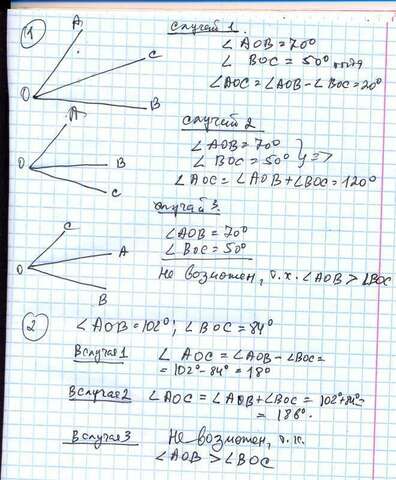 1 A Случай 1.
∠AOB = 70°
C ∠ BOC = 50° тогда
∠AOC = ∠AOB - ∠BOC = 20°
O B
A Случай 2
∠AOB = 70°
O B ∠ BOC = 50° } =>
C ∠AOC = ∠AOB + ∠BOC = 120°
C Случай 3.
∠AOB = 70°
O A ∠BOC = 50°
B Не возможен, т.к. ∠AOB > ∠BOC
2 ∠AOB = 102°; ∠BOC = 84°
В случае 1 ∠ AOC = ∠AOB - ∠BOC =
= 102° - 84° = 18°
В случае 2 ∠AOC = ∠AOB + ∠BOC = 102° + 84° =
= 186°.
В случае 3 Не возможен, т.к.
∠AOB > ∠BOC